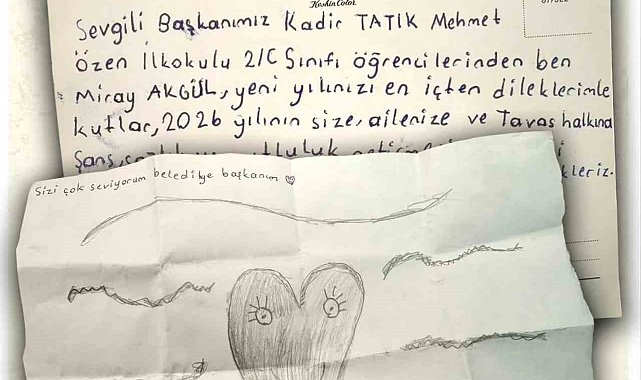 Keskin Color
Sevgili Başkanımız Kadir TATIK Mehmet
Özen İlkokulu 2/C Sınıfı öğrencilerinden ben
Miray AKGÜL, yeni yılınızı en içten dileklerimle
kutlar, 2026 yılının size, ailenize ve Tavas halkına
Şans,
Sizi çok seviyorum belediye başkanım